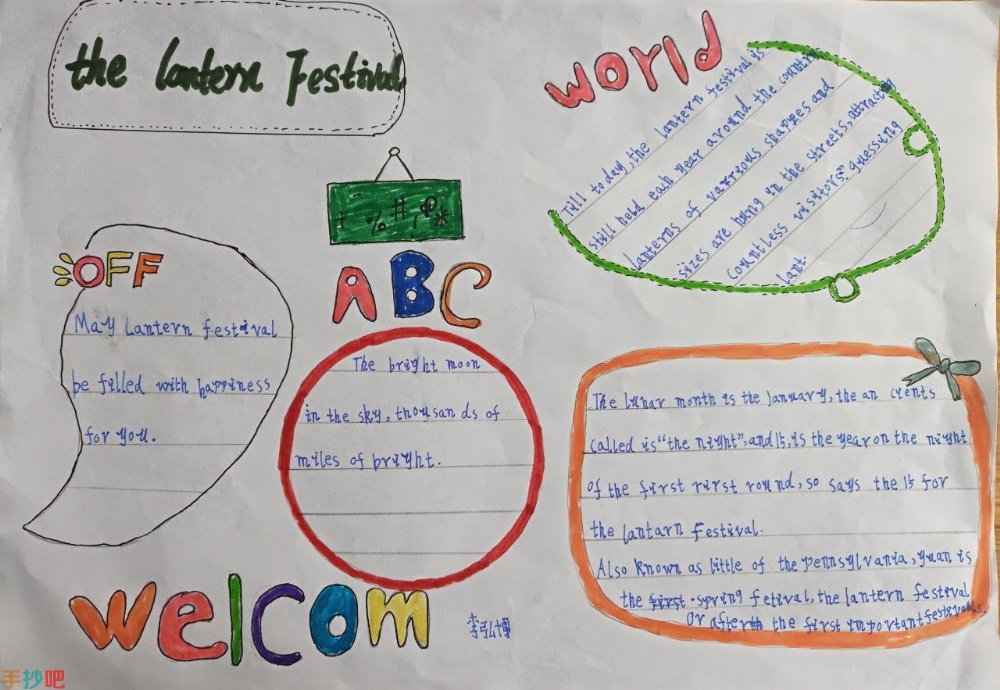 the Lantern Festival
World
Till to day, the lantern festival is
still held each year around the country
lanterns of varrious shapges and
sizes are hung in the streets, attracting
countless visitors." guessing
lant.
+ · % # , *
OFF
May Lantern festival
be filled with happiness
for you.
ABC
The bright moon
in the sky, thousan ds of
miles of bright.
The lunar month is the January, the an cients
called is "the night", and 15, is the year on the night
of the first rirst round, so says the 15 for
the lantarn Festival.
Also known as little of the pennsylvania, yuan is
the first spring fetival, the lantern festival
Or afterth the first important festivals.
Welcom
李弘博
手抄吧